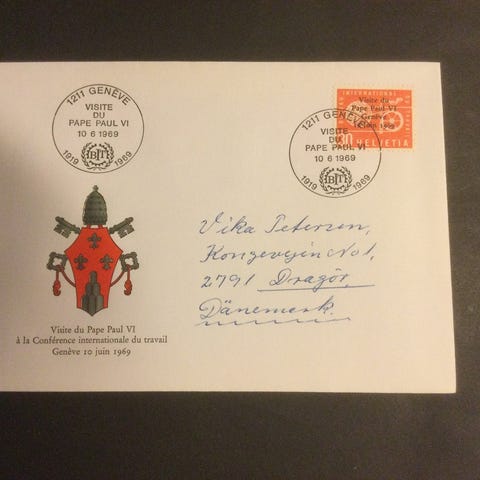 1211 GENÈVE
VISITE
DU
PAPE PAUL VI
10 6 1969
BIT
1919 1969
1211 GENÈVE
VISITE
DU
PAPE PAUL VI
10 6 1969
BIT
1919 1969
INTERNATIONAL
Visite du
Pape Paul VI
Genève
10 juin 1969
HELVETIA
Vika Petersen,
Kongevejen No 1,
2791 Dragör,
Dänemark.
Visite du Pape Paul VI
à la Conférence internationale du travail
Genève 10 juin 1969